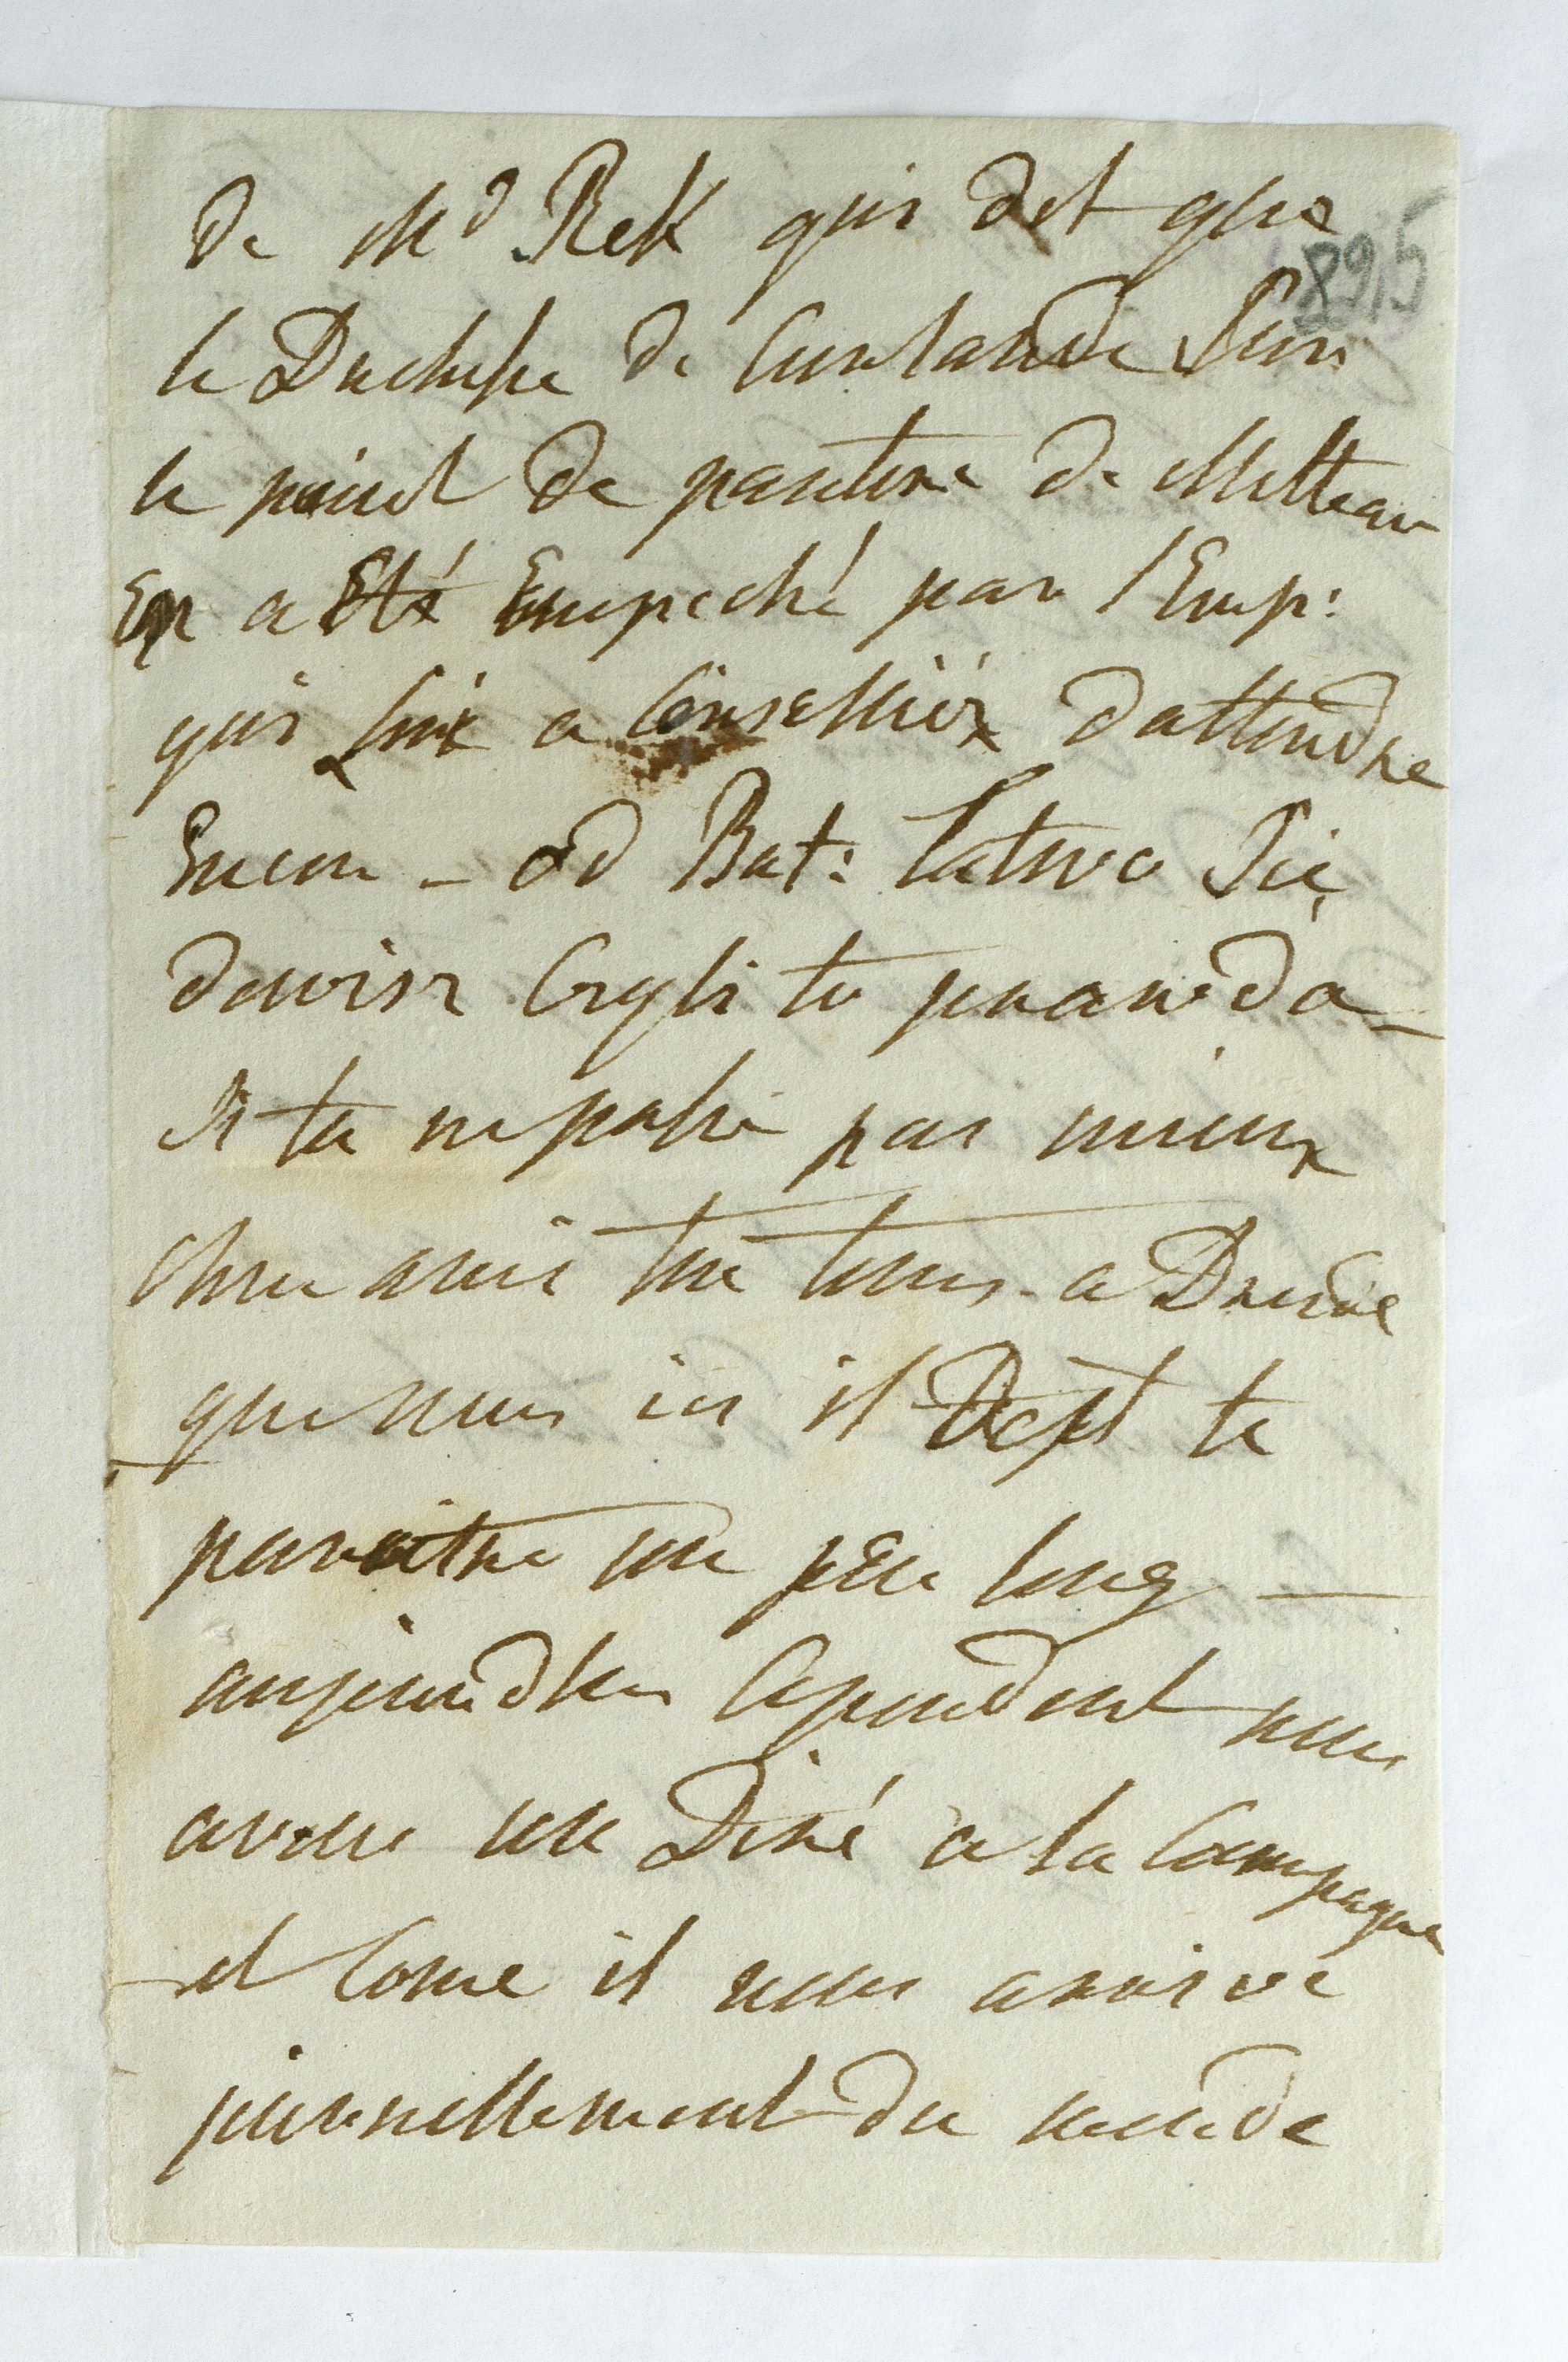 de Md Rek qui dit que
895
la Duchesse de Curlande sur
le point de partire de Mittau
En a Eté Empeché par l'Emp:
qui lui a Conseilliér dattendre
Encore – od Bat: Latwo Się
dowisz Czyli to prawda –
si tu ne passe pas mieux
chre amie tu tems a Dresde
que nous ici il doit te
paroitre un peu long –
aujourdhui Cependant nous
avons un Diné a la Campagne
et Come il nous arrive
journellement du monde